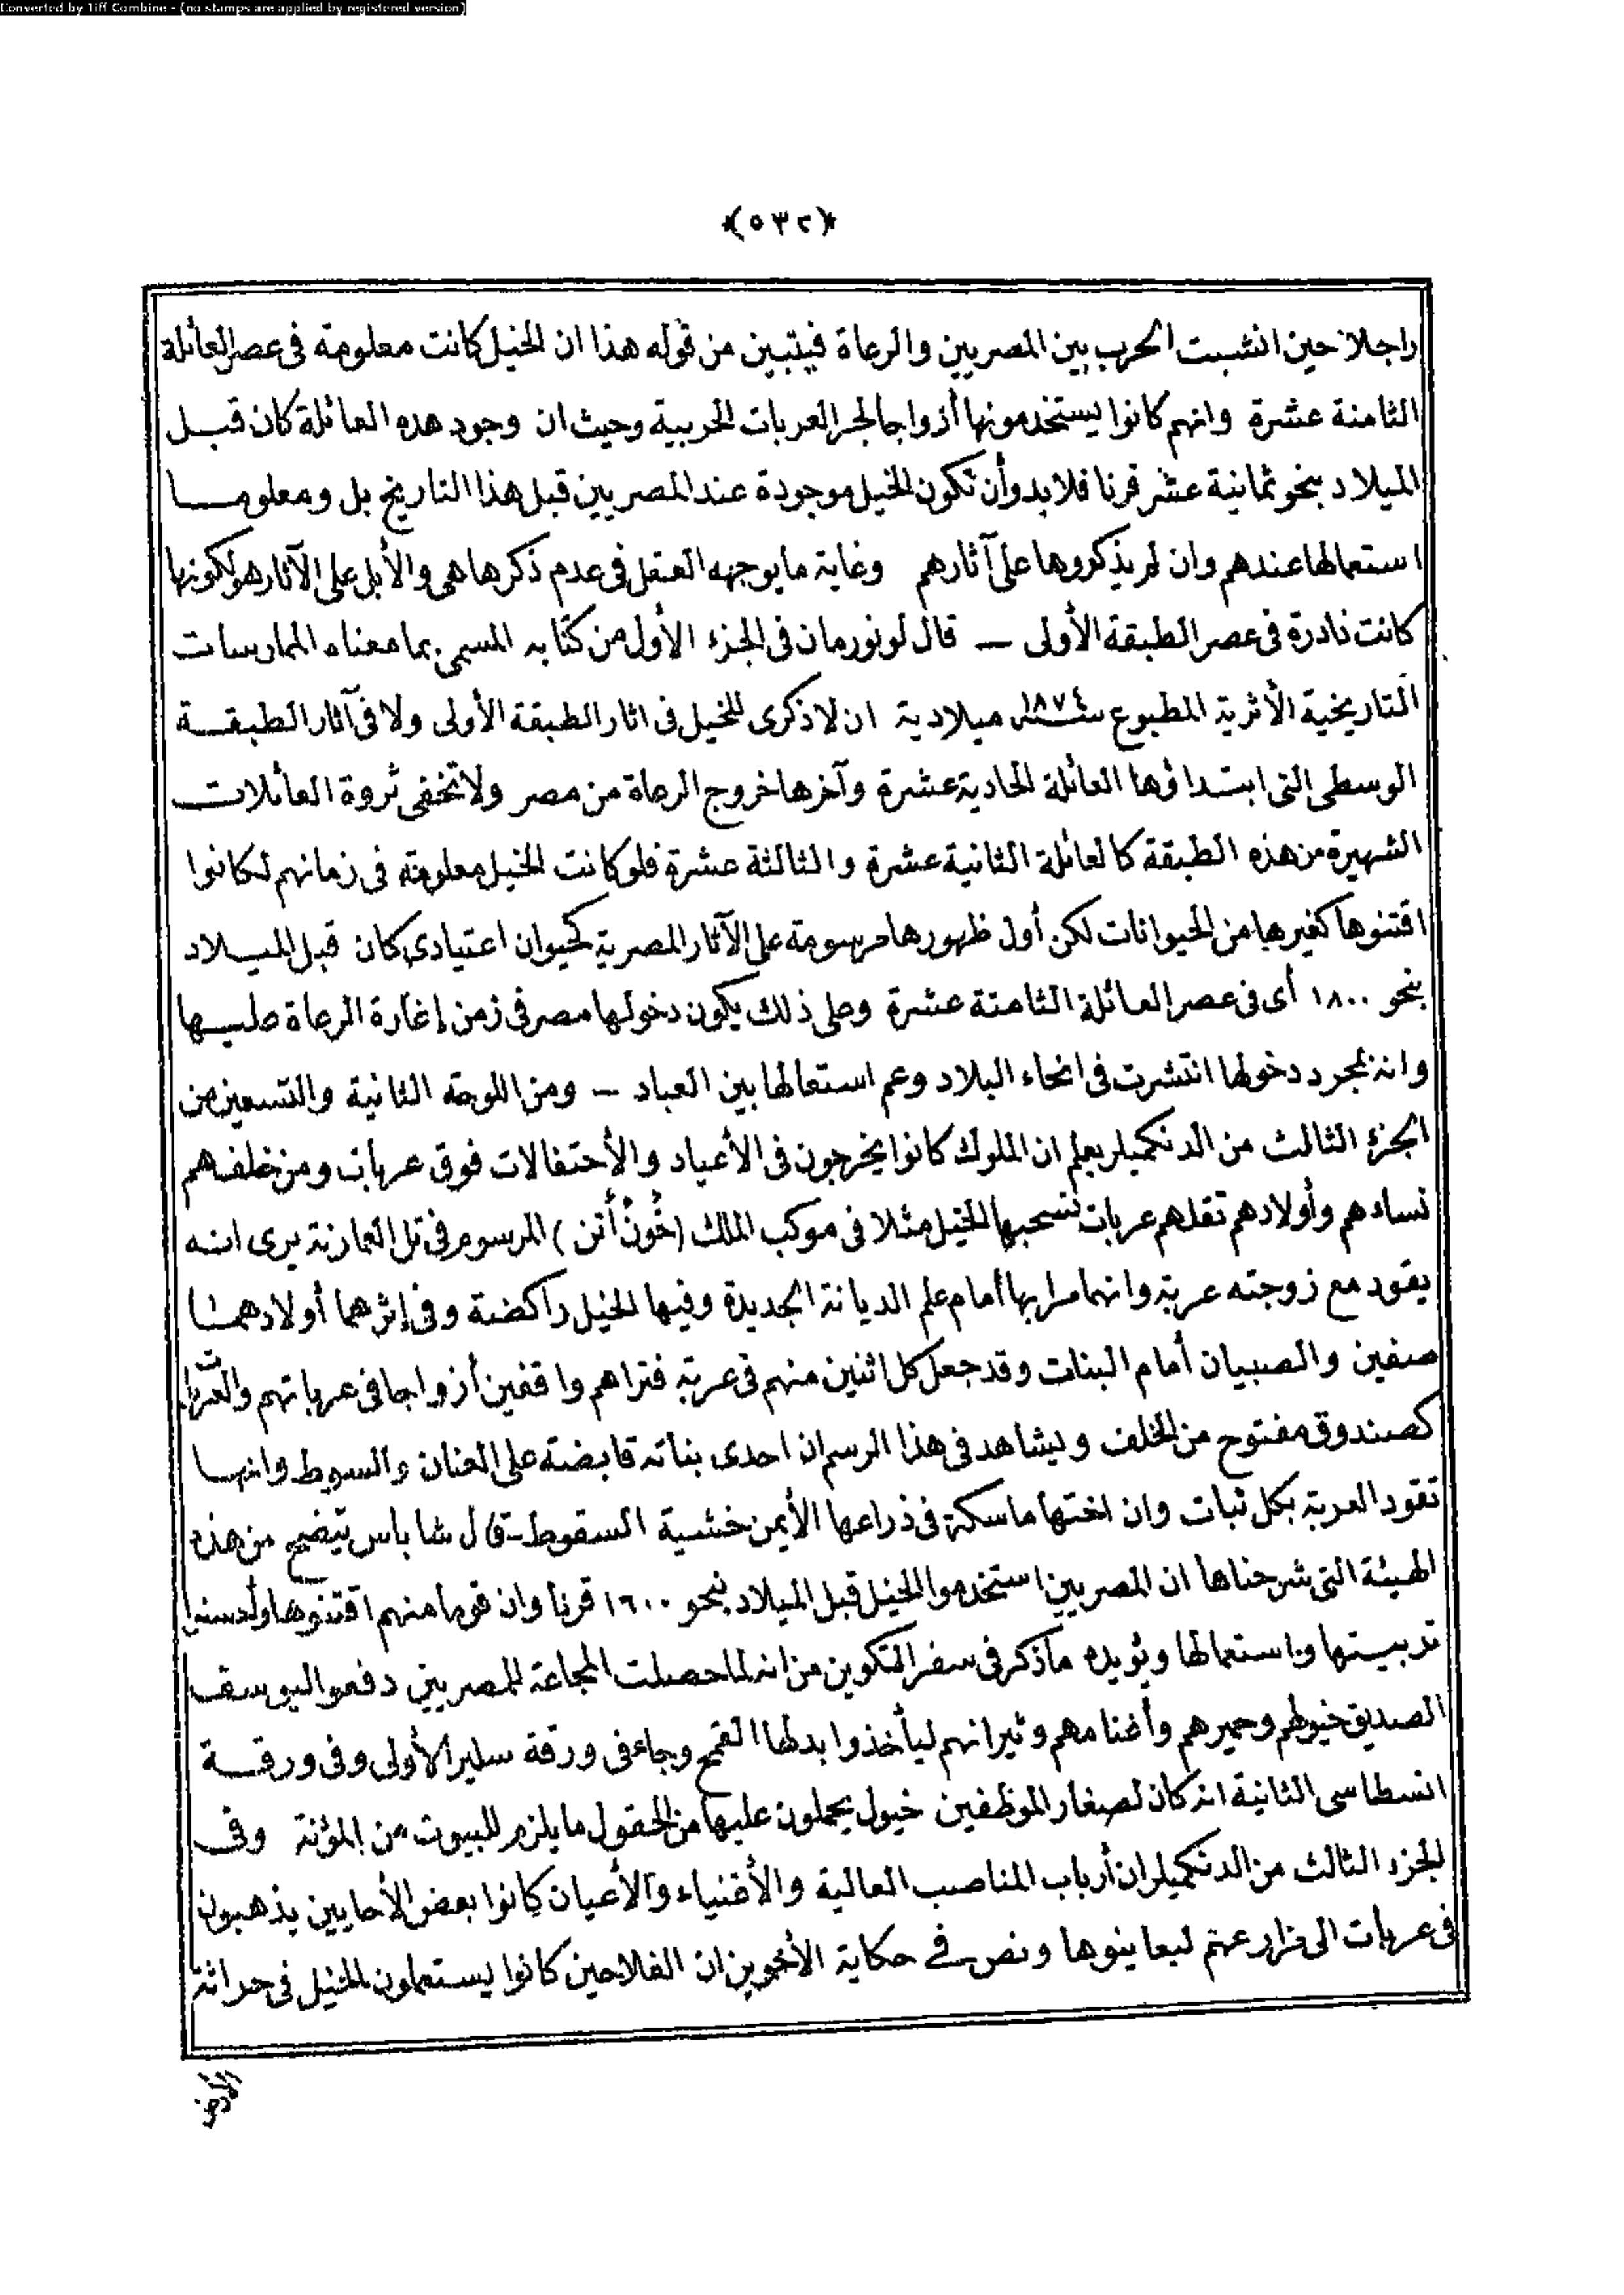 Converted by Tiff Combine - (no stamps are applied by registered version)
﴿٥٣٢﴾
راجلا حين انشبت الحرب بين المصريين والرعاة فيتبين من قوله هذا ان الخيل كانت معلومة فى عصر العائلة
الثامنة عشرة وانهم كانوا يستخدمونها أزواجا لجر العربات الحربية وحيث ان وجود هذه العائلة كان قبل
الميلاد بنحو ثمانية عشر قرنا فلابد وأن تكون الخيل موجودة عند المصريين قبل هذا التاريخ بل ومعلوما
استعمالها عندهم وان لم يذكروها على آثارهم وغاية ما يوجهه العقل فى عدم ذكرها هى والأبل على الآثار هو لكونها
كانت نادرة فى عصر الطبقة الأولى — قال لونورمان فى الجزء الأول من كتابه المسمى بما معناه الممارسات
التاريخية الأثرية المطبوع سنة ١٨٧٤ ميلادية ان لا ذكرى للخيل فى اثار الطبقة الأولى ولا فى آثار الطبقة
الوسطى التى ابتداؤها العائلة الحادية عشرة وآخرها خروج الرعاة من مصر ولا تخفى ثروة العائلات
الشهيرة من هذه الطبقة كالعائلة الثانية عشرة والثالثة عشرة فلو كانت الخيل معلومة فى زمانهم لكانوا
اقتنوها كغيرها من الحيوانات لكن أول ظهورها مرسومة على الآثار المصرية كحيوان اعتيادى كان قبل الميلاد
بنحو ١٨٠٠ أى فى عصر العائلة الثامنة عشرة وعلى ذلك يكون دخولها مصر فى زمن إغارة الرعاة عليها
وانه بمجرد دخولها انتشرت فى انحاء البلاد وعم استعمالها بين العباد — ومن اللوحة الثانية والتسعين من
الجزء الثالث من الدنكميلر يعلم ان الملوك كانوا يخرجون فى الأعياد والأحتفالات فوق عربات ومن خلفهم
نساءهم وأولادهم تقلهم عربات تسحبها الخيل مثلا فى موكب الملك (خُونْ أتن) المرسوم فى تل العمارنة يرى انه
يقود مع زوجته عربة وانهما مرا بها أمام علم الديانة الجديدة وفيها الخيل راكضة وفى إثرهما أولادهما
صفين والصبيان أمام البنات وقد جعل كل اثنين منهم فى عربة فتراهم واقفين أزواجا فى عرباتهم والعربات
كصندوق مفتوح من الخلف ويشاهد فى هذا الرسم ان احدى بناته قابضة على العنان والسوط وانها
تقود العربة بكل ثبات وان اختها ماسكة فى ذراعها الأيمن خشية السقوط — قال شاباس يتضح من هذه
الهيئة التى شرحناها ان المصريين استخدموا الخيل قبل الميلاد بنحو ١٦٠٠ قرنا وان قوما منهم اقتنوها وأحسنوا
تربيتها واستعمالها ويؤيده ماذكر فى سفر التكوين من انه لما حصلت المجاعة للمصريين دفعوا ليوسف
الصديق خيولهم وحميرهم وأغنامهم وثيرانهم ليأخذوا بدلها القمح وجاء فى ورقة سلير الأولى وفى ورقة
انسطاسى الثانية انه كان لصغار الموظفين خيول يحملون عليها من الحقول ما يلزم للبيوت من المؤنة وفى
الجزء الثالث من الدنكميلر ان أرباب المناصب العالية والأغنياء والأعيان كانوا بعض الأحايين يذهبون
فى عربات الى مزارعهم ليعاينوها ونص فى حكاية الأخوين ان الفلاحين كانوا يستعملون الخيل فى حراثة